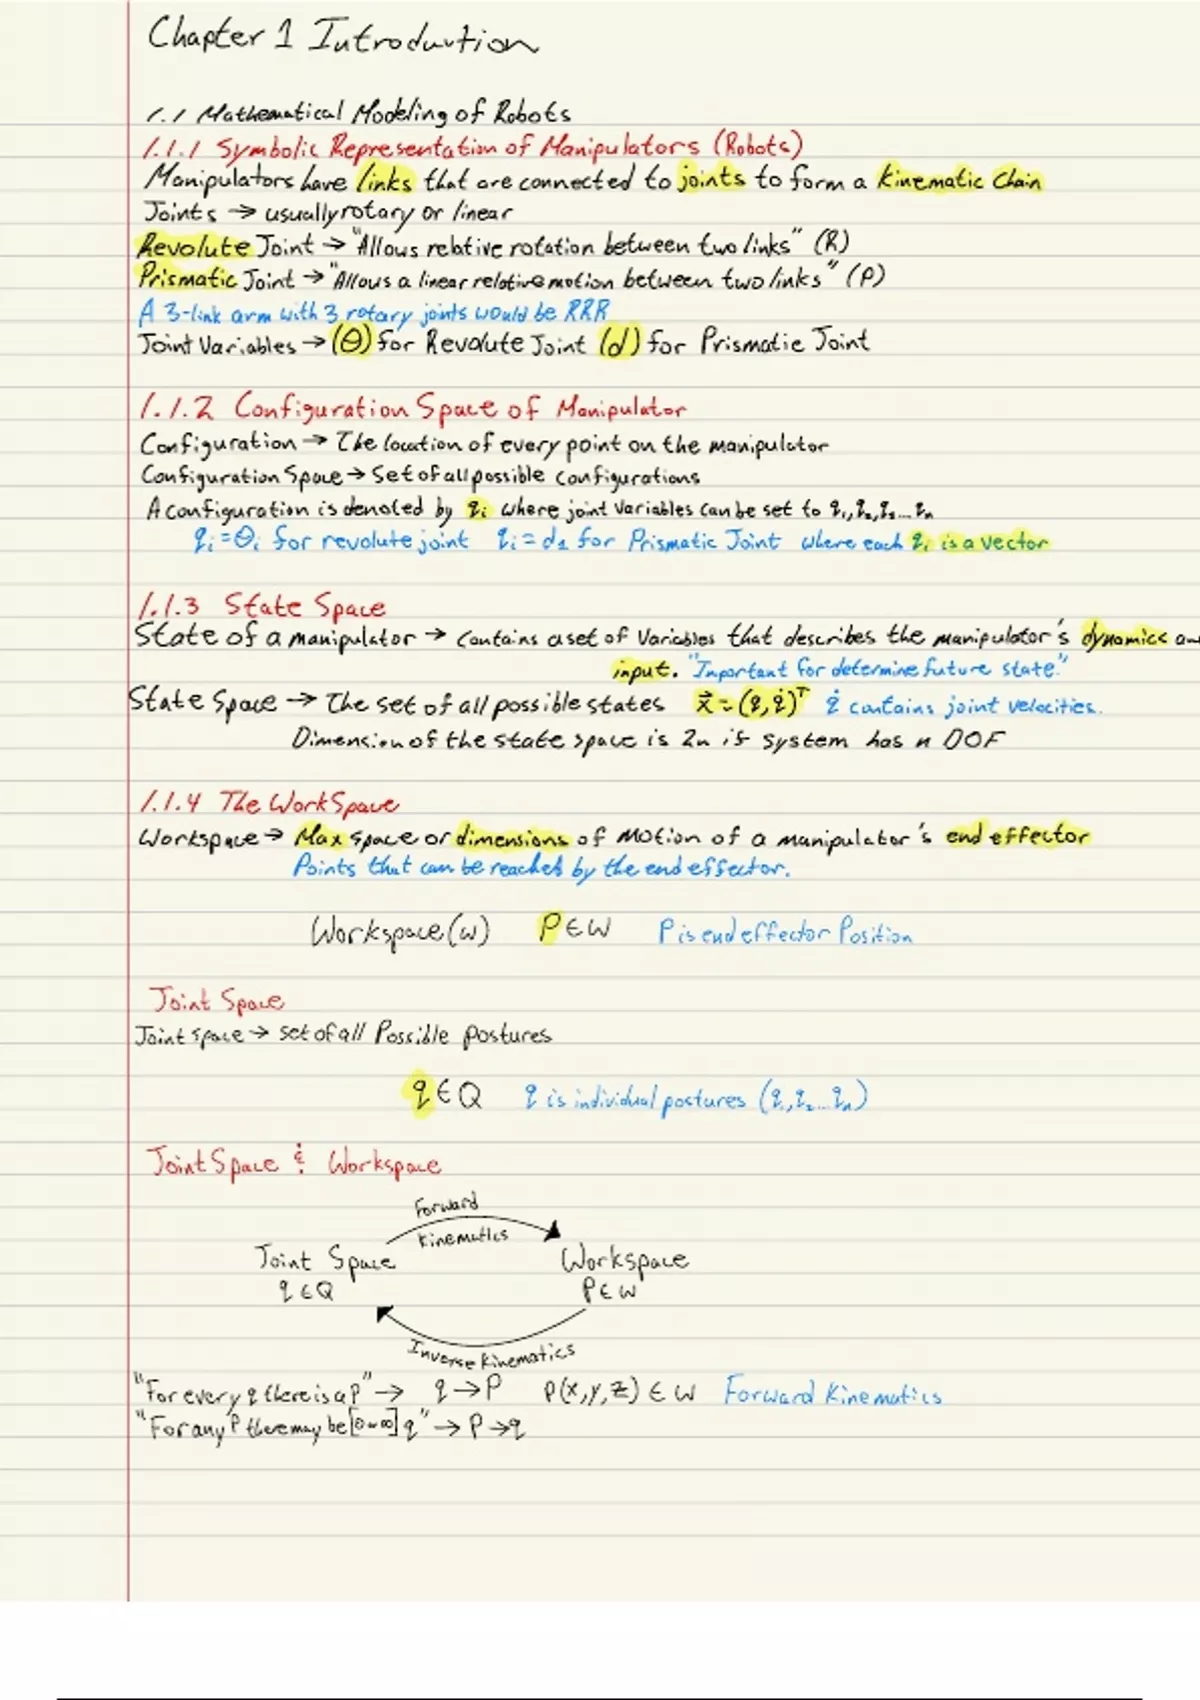 Chapter 1 Introduction
1.1 Mathematical Modeling of Robots
1.1.1 Symbolic Representation of Manipulators (Robots)
Manipulators have links that are connected to joints to form a Kinematic Chain
Joints → usually rotary or linear
Revolute Joint → "Allows relative rotation between two links" (R)
Prismatic Joint → "Allows a linear relative motion between two links" (P)
A 3-link arm with 3 rotary joints would be RRR
Joint Variables → (θ) for Revolute Joint (d) for Prismatic Joint
1.1.2 Configuration Space of Manipulator
Configuration → The location of every point on the manipulator
Configuration Space → Set of all possible configurations
A configuration is denoted by qᵢ where joint variables can be set to q₁, q₂, q₃... qₙ
qᵢ = θᵢ for revolute joint qᵢ = d₁ for Prismatic Joint where each qᵢ is a vector
1.1.3 State Space
State of a manipulator → Contains a set of Variables that describes the manipulator's dynamics
input. "Important for determine future state."
State Space → The set of all possible states x⃗ = (q, q̇)ᵀ q̇ contains joint velocities.
Dimension of the state space is 2n if system has n DOF
1.1.4 The WorkSpace
Workspace → Max space or dimensions of motion of a manipulator's end effector
Points that can be reached by the end effector.
Workspace (w) P ∈ W P is end effector Position
Joint Space
Joint space → set of all Possible postures
q ∈ Q q is individual postures (q₁, q₂... qₙ)
Joint Space & Workspace
Forward
Kinematics
Joint Space Workspace
q ∈ Q P ∈ W
Inverse Kinematics
"For every q there is a p" → q → P P(x, y, z) ∈ W Forward Kinematics
"For any P there may be [0-∞] q" → P → q